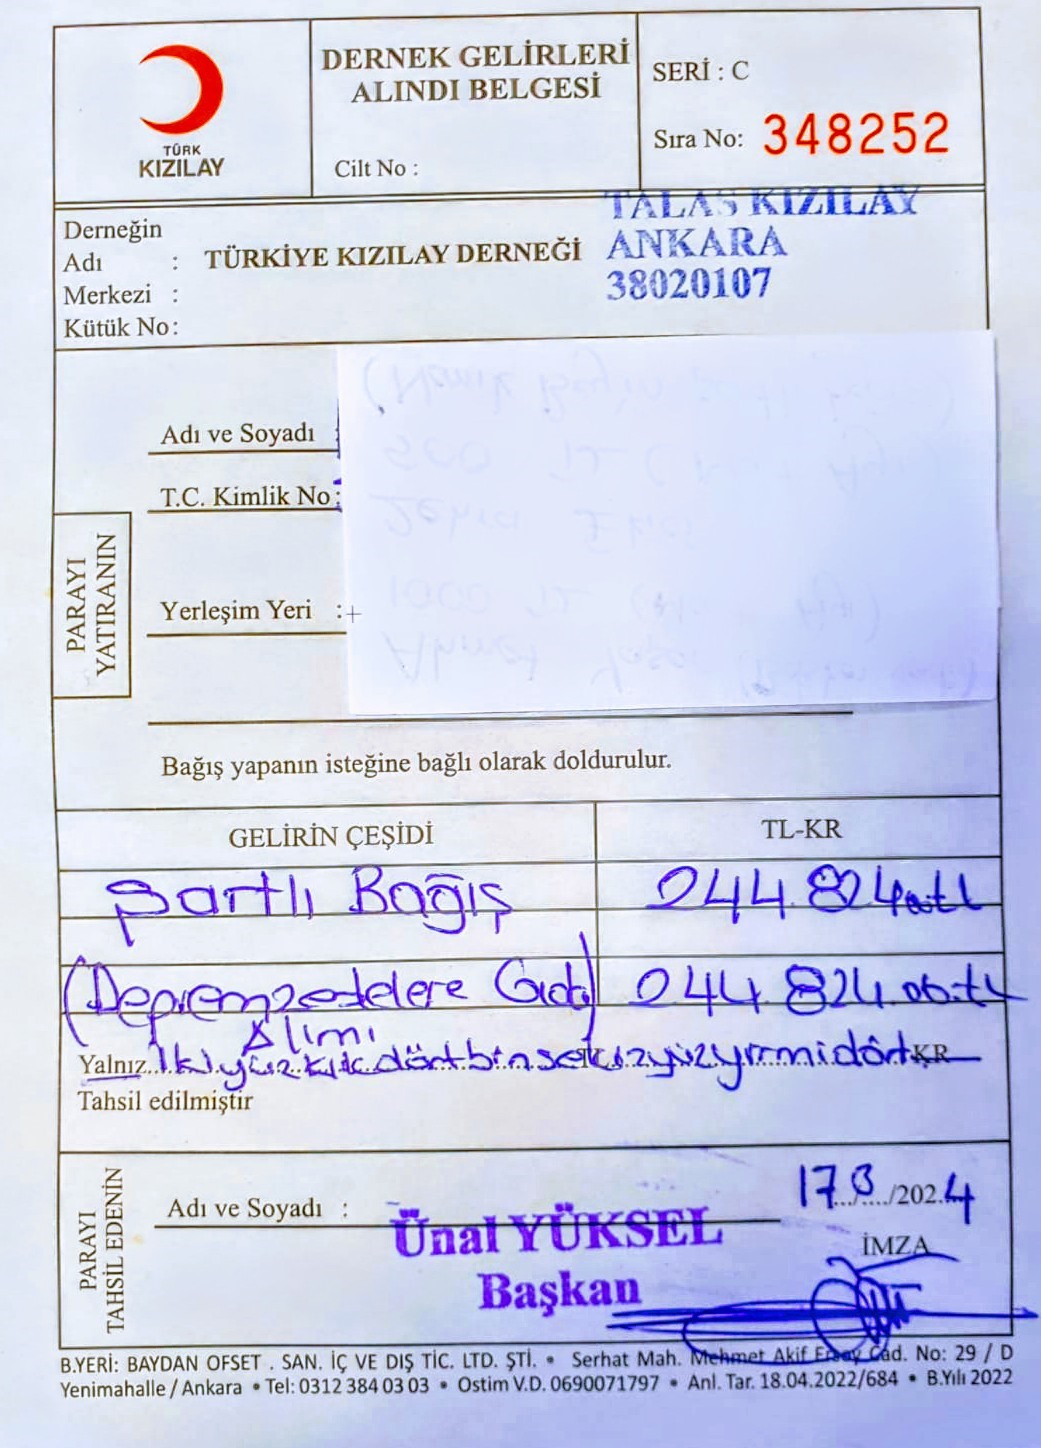 TÜRK
KIZILAY
DERNEK GELİRLERİ
ALINDI BELGESİ
Cilt No :
SERİ : C
Sıra No: 348252
Derneğin
Adı : TÜRKİYE KIZILAY DERNEĞİ
Merkezi :
Kütük No:
TALAS KIZILAY
ANKARA
38020107
PARAYI
YATIRANIN
Adı ve Soyadı :
T.C. Kimlik No :
Yerleşim Yeri :+
Bağış yapanın isteğine bağlı olarak doldurulur.
GELİRİN ÇEŞİDİ TL-KR
Şartlı Bağış 244.824.00.tl
(Depremzedelere Gıda 244.824.00.tl
Alımı)
Yalnız İkiyüzkırkdörtbinsekizyüzyirmidört KR
Tahsil edilmiştir
PARAYI
TAHSİL EDENİN
Adı ve Soyadı :
Ünal YÜKSEL
Başkan
17./3./2024
İMZA
B.YERİ: BAYDAN OFSET . SAN. İÇ VE DIŞ TİC. LTD. ŞTİ. • Serhat Mah. Mehmet Akif Ersoy Cad. No: 29 / D
Yenimahalle / Ankara • Tel: 0312 384 03 03 • Ostim V.D. 0690071797 • Anl. Tar. 18.04.2022/684 • B.Yılı 2022